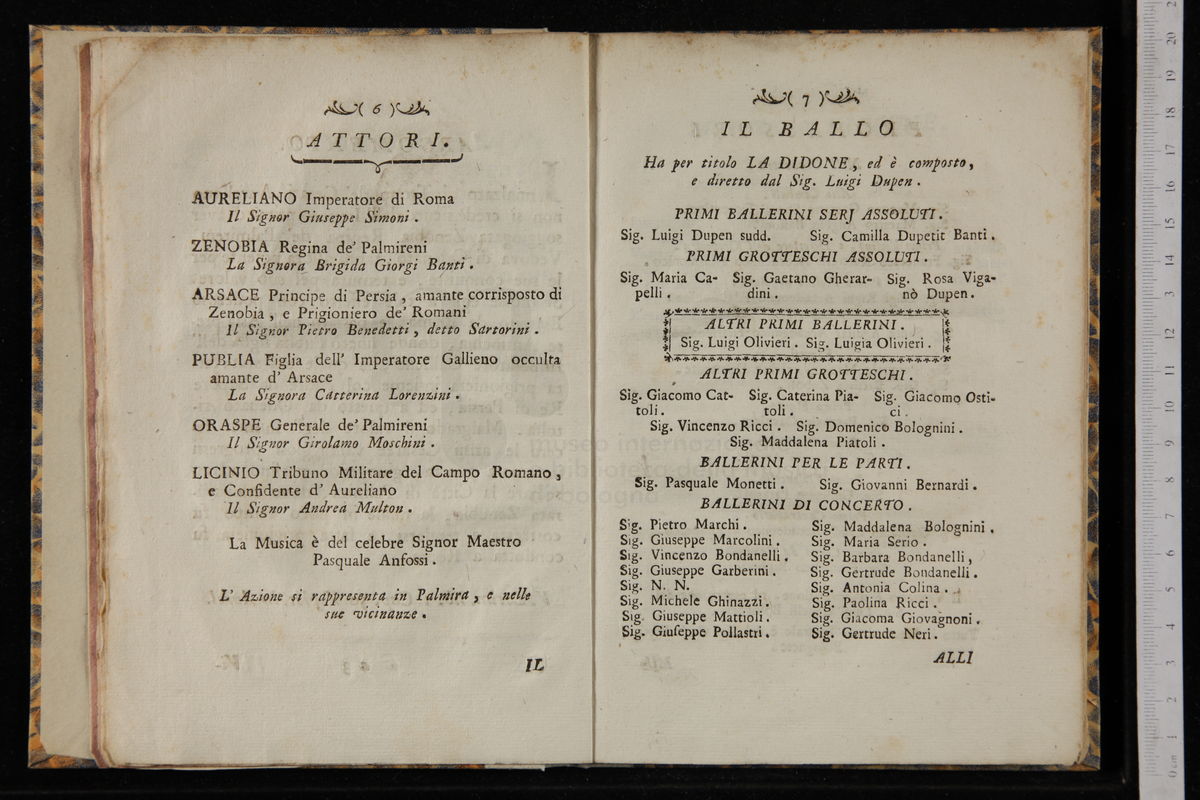 ( 6 )
ATTORI.
AURELIANO Imperatore di Roma
Il Signor Giuseppe Simoni .
ZENOBIA Regina de' Palmireni
La Signora Brigida Giorgi Banti .
ARSACE Principe di Persia , amante corrisposto di
Zenobia , e Prigioniero de' Romani
Il Signor Pietro Benedetti , detto Sartorini .
PUBLIA Figlia dell' Imperatore Gallieno occulta
amante d' Arsace
La Signora Catterina Lorenzini .
ORASPE Generale de' Palmireni
Il Signor Girolamo Moschini .
LICINIO Tribuno Militare del Campo Romano ,
e Confidente d' Aureliano
Il Signor Andrea Multon .
La Musica è del celebre Signor Maestro
Pasquale Anfossi .
L' Azione si rappresenta in Palmira , e nelle
sue vicinanze .
IL
( 7 )
IL BALLO
Ha per titolo LA DIDONE , ed è composto ,
e diretto dal Sig. Luigi Dupen .
PRIMI BALLERINI SERJ ASSOLUTI .
Sig. Luigi Dupen sudd. Sig. Camilla Dupetit Banti .
PRIMI GROTTESCHI ASSOLUTI .
Sig. Maria Ca- Sig. Gaetano Gherar- Sig. Rosa Viga-
pelli . dini . nò Dupen .
ALTRI PRIMI BALLERINI .
Sig. Luigi Olivieri . Sig. Luigia Olivieri .
ALTRI PRIMI GROTTESCHI .
Sig. Giacomo Cat- Sig. Caterina Pia- Sig. Giacomo Osti-
toli . toli . ci .
Sig. Vincenzo Ricci . Sig. Domenico Bolognini .
Sig. Maddalena Piatoli .
BALLERINI PER LE PARTI .
Sig. Pasquale Monetti . Sig. Giovanni Bernardi .
BALLERINI DI CONCERTO .
Sig. Pietro Marchi . Sig. Maddalena Bolognini .
Sig. Giuseppe Marcolini . Sig. Maria Serio .
Sig. Vincenzo Bondanelli . Sig. Barbara Bondanelli ,
Sig. Giuseppe Garberini . Sig. Gertrude Bondanelli .
Sig. N. N. Sig. Antonia Colina .
Sig. Michele Ghinazzi . Sig. Paolina Ricci .
Sig. Giuseppe Mattioli . Sig. Giacoma Giovagnoni .
Sig. Giuseppe Pollastri . Sig. Gertrude Neri .
ALLI